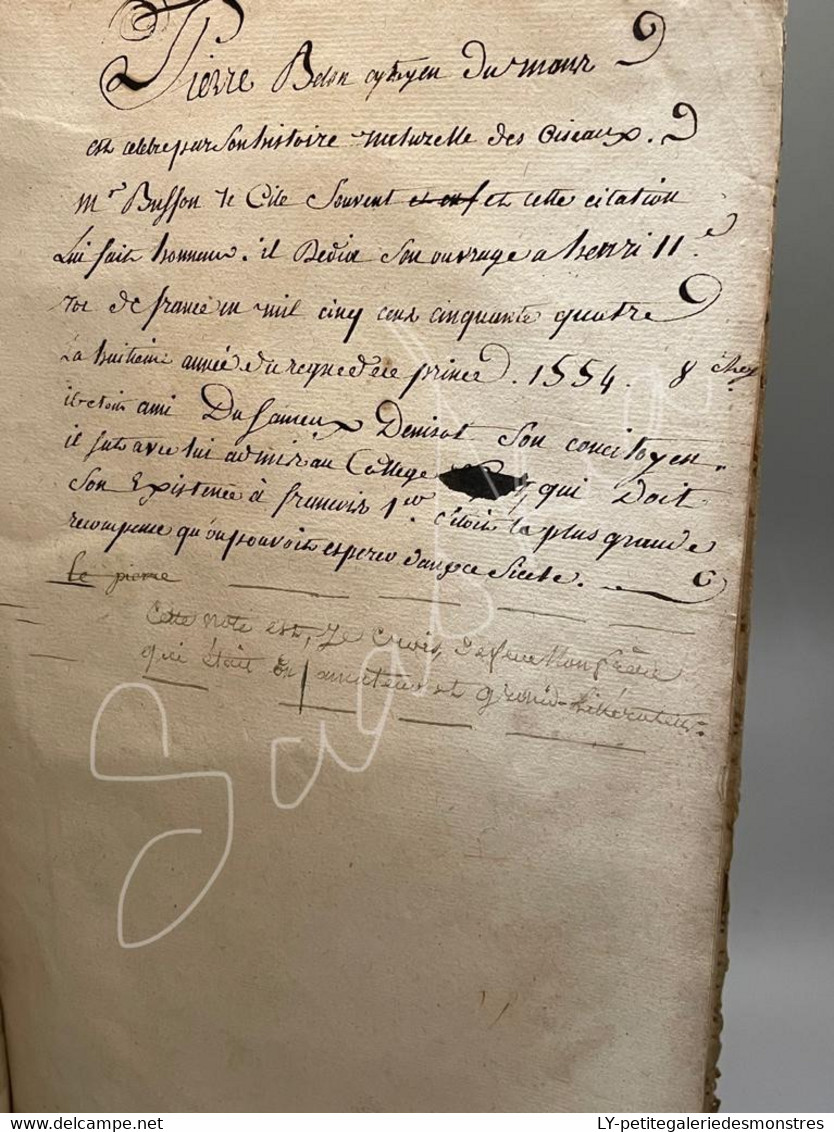 Pierre Belon cytoyen du mans
est celebre par son histoire naturelle des oiseaux.
Mr Buffon le Cite Souvent et cette citation
Lui fait honneur. il Dedia Son ouvrage a henri II.e
roi de france en mil cinq cent cinquante quatre
La huitieme année du regne de ce prince. 1554. 8
il etoit ami Du fameux Denisot Son concitoyen.
il fut avec lui admis au College qui Doit
Son Existence à francois 1er. c'étoit la plus grande
recompense qu'on pouvoit esperer dans ce Siecle.
le pierre
Cette note est, je crois, de feu Mon frère
qui était un amateur et grand littérateur.
Saab
LY-petitegaleriedesmonstres